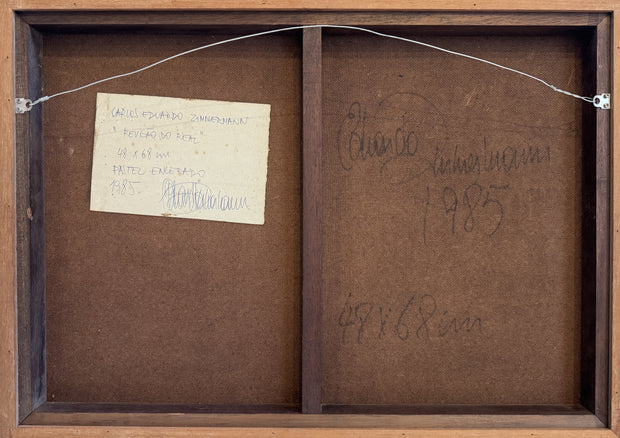 CARLOS EDUARDO ZIMMERMANN
48 x 68 cm
PASTEL ENCERADO
1985
Eduardo Zimmermann
1985
48 x 68 cm